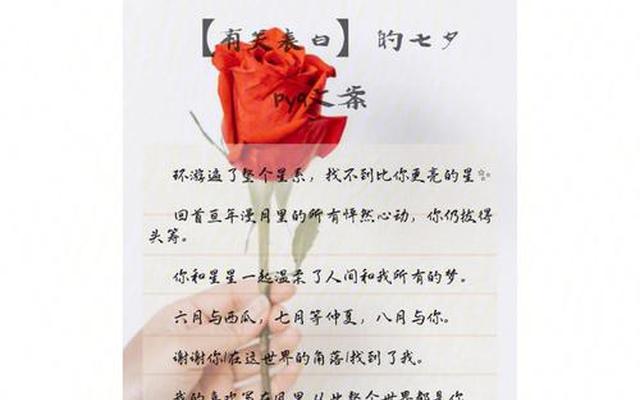 【有关表白】的七夕
pyq文案
环游遍了整个星系，找不到比你更亮的星✨
回首亘年漫月里的所有怦然心动，你仍拔得
头筹。
你和星星一起温柔了人间和我所有的梦。
六月与西瓜，七月等仲夏，八月与你。
谢谢你/在这世界的角落/找到了我。
我的喜欢写在风里 从此整个世界都是你